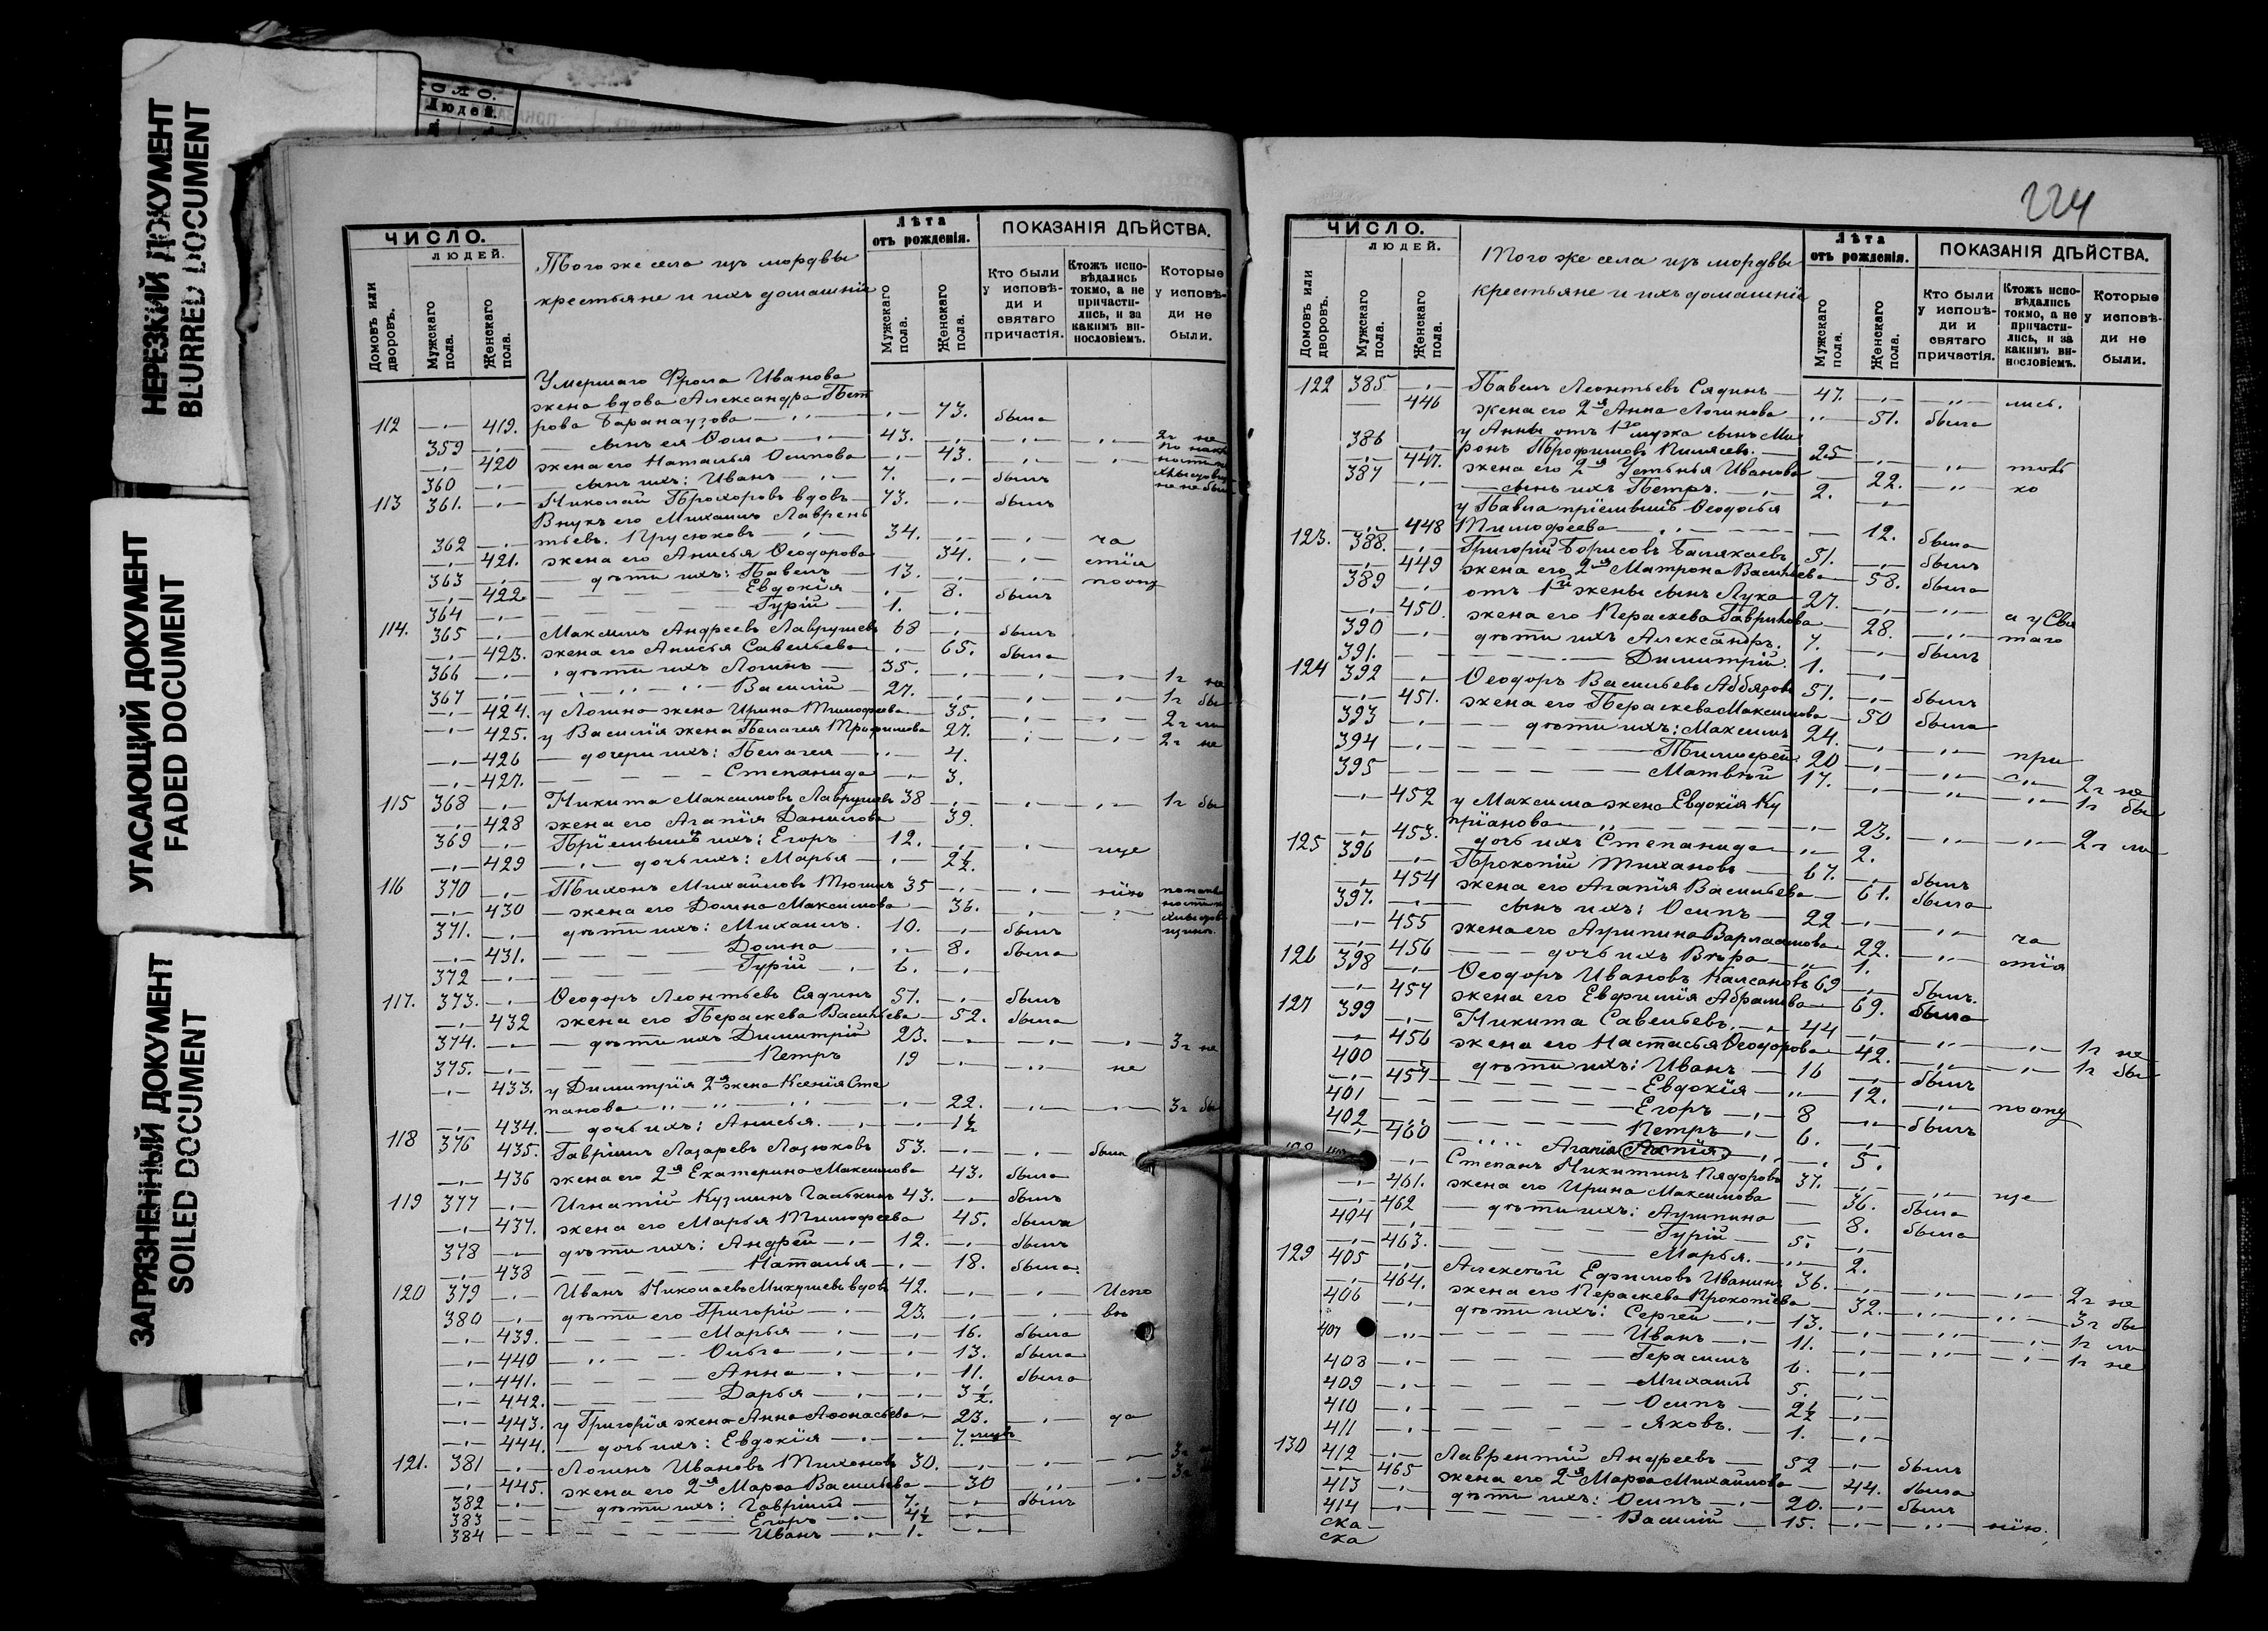 НЕРЕЗКИЙ ДОКУМЕНТ
BLURRED DOCUMENT
УГАСАЮЩИЙ ДОКУМЕНТ
FADED DOCUMENT
ЗАГРЯЗНЕННЫЙ ДОКУМЕНТ
SOILED DOCUMENT
Людей.
ЧИСЛО.
ЛЮДЕЙ.
Домовъ или дворовъ.
Мужскаго пола.
Женскаго пола.
Того же села изъ мордвы
крестьяне и ихъ домашніе
Лѣта
отъ рожденія.
Мужскаго пола.
Женскаго пола.
ПОКАЗАНІЯ ДѢЙСТВА.
Кто были у исповѣди и святаго причастія.
Ктожъ исповѣдались токмо, а не причастились, и за какимъ винословіемъ.
Которые у исповѣди не были.
Умершаго Фрола Иванова
жена вдова Александра Пет
112 419. рова Баранаузова 73. была
359 сынъ ея Ѳома 43. 2 г не
420 жена его Наталья Осипова 43.
360 сынъ ихъ: Иванъ 7. былъ
113 361. Николай Прохоровъ вдовъ 73. былъ
Внукъ его Михаилъ Лаврень
362 тьевъ. Прусюковъ 34. ча
421. жена его Анисья Ѳеодорова 34. стія
363 дѣти ихъ: Павелъ 13. по опу
422. Евдокія 8. былъ
364 Гурій 1.
114. 365 Максимъ Андреевъ Лаврушевъ 68 былъ
423. жена его Анисья Савельева 65. была
366 дѣти ихъ Логинъ 35. 1 г не
367 Василій 27. 1 г бы
424. у Логина жена Ирина Тимофеева 35. 2 г ли
425. у Василія жена Пелагея Трофимова 27. 2 г не
426 дочери ихъ: Пелагея 4.
427. Степанида 3.
115 368 Никита Максимовъ Лаврушевъ 38 1 г бы
428 жена его Агапія Данилова 39.
369 Пріемышъ ихъ: Егоръ 12. уще
429 дочь ихъ: Марья 2½.
116 370 Тихонъ Михайловъ Тюшъ 35 нію
430 жена его Домна Максимова 36.
371. дѣти ихъ: Михаилъ. 10. былъ
431. Домна 8. была
372 Гурій 6.
117. 373. Ѳеодоръ Леонтьевъ Сядинъ 57. былъ
432 жена его Параскева Васильева 52. была
374. дѣти ихъ Димитрій 23. 3 г не
375. Петръ 19 не
433. у Димитрія 2я жена Ксенія Сте
панова 22. 3 г бы
434. дочь ихъ: Анисья. 1½
118 376 435. Гавріилъ Лазаревъ Лазюковъ 53. были
436 жена его 2я Екатерина Максимова 43. была
119 377 Игнатій Кузминъ Галткинъ 43. былъ
437. жена его Марья Тимофеева 45. была
378 дѣти ихъ: Андрей 12. былъ
438 Наталья 18. была.
120 379 Иванъ Николаевъ Микушевъ вдовъ 42. Испо
380 дѣти его Григорій 23. вѣ
439. Марья 16. была
440 Ольга 13. была
441. Анна 11. была
442. Дарья 3½.
443. у Григорія жена Анна Аѳонасьева 23. да
444. дочь ихъ: Евдокія 7.
121. 381 Логинъ Ивановъ Тихоновъ 30.
445. жена его 2я Марѳа Васильева 30
382 дѣти ихъ: Гавріилъ 7. былъ
383 Егоръ 4½
384 Иванъ 1.
224
ЧИСЛО.
ЛЮДЕЙ.
Домовъ или дворовъ.
Мужскаго пола.
Женскаго пола.
Того же села изъ мордвы
крестьяне и ихъ домашніе
Лѣта
отъ рожденія.
Мужскаго пола.
Женскаго пола.
ПОКАЗАНІЯ ДѢЙСТВА.
Кто были у исповѣди и святаго причастія.
Ктожъ исповѣдались токмо, а не причастились, и за какимъ винословіемъ.
Которые у исповѣди не были.
122 385 Павелъ Леонтьевъ Сядинъ 47. лись.
446 жена его 2я Анна Логинова 51. была
у Анны отъ 1го мужа сынъ Ми
386 ронъ Трофимовъ Пилясевъ. 25
447. жена его 2я Устинья Иванова 22. толь
387 сынъ ихъ Петръ. 2. ко
у Павла пріемышъ Ѳеодосья
448 Тимофеева 12. была
123. 388. Григорій Борисовъ Балякаевъ 51. былъ
449 жена его 2я Матрона Васильева 58. была
389 отъ 1й жены сынъ Лука 27.
450. жена его Параскева Гаврилова 28. а у Свя
390 дѣти ихъ Александръ. 7. былъ таго
391. Димитрій. 1.
124 392 Ѳеодоръ Васильевъ Аббязовъ 51. былъ
451. жена его Параскева Максимова 50 была
393 дѣти ихъ: Максимъ 24.
394 Тимофей 20 при
395 Матвѣй 17. 2 г не
452 у Максима жена Евдокія Ку 1 г бы
пріанова 23. 2 г ли
453. дочь ихъ Степанида 2.
125 396 Прокопій Тихановъ 67. былъ
454 жена его Агапія Васильева 61. была
397. сынъ ихъ: Осипъ 22
455 жена его Агрипина Варлаамова 22. ча
456 дочь ихъ Вѣра 1. стія
126 398 Ѳеодоръ Ивановъ Калсановъ 69 былъ.
457 жена его Евфимія Абрамова 69. была
127 399 Никита Савельевъ. 44 1 г не
456 жена его Настасья Ѳеодорова 42. 1 г бы
400 дѣти ихъ: Иванъ 16 былъ
457 Евдокія 12.
401 Егоръ 8 былъ по опу
402 Петръ 6.
460 Агапія Агапія 5.
Степанъ Никитинъ Кядоровъ 37. ще
461. жена его Ирина Максимова 36. была
462 дѣти ихъ: Агрипина 8. была
404 Гурій 5.
463. Марья. 2.
129 405 Алексѣй Ефимовъ Иванинъ 36. 2 г не
464. жена его Параскева Прокопіева 32. 3 г бы
406 дѣти ихъ: Сергей 13. 1 г ли
407 Иванъ 11. 1 г не
408 Герасимъ 6.
409 Михаилъ 5.
410 Осипъ 2½
411 Яковъ. 1.
130 412 Лаврентій Андреевъ 52 былъ
465 жена его 2я Марѳа Михайлова 44. была
413 дѣти ихъ: Осипъ 20. былъ
414 Василій 15. нію.
ска-
ска